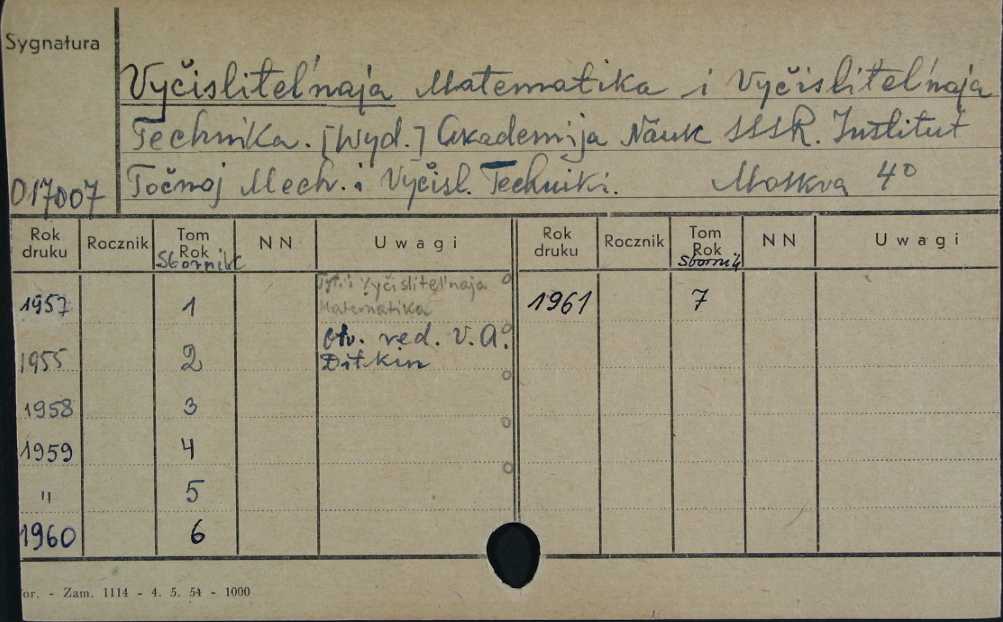 Sygnatura
Vyčislitel'naja Matematika i Vyčislitel'naja
Technika. [Wyd.] Akademija Nauk SSSR. Institut
Točnoj Mech. i Vyčisl. Techniki. Moskva 4°
017007
Rok druku Rocznik Tom Rok Sbornik N N Uwagi Rok druku Rocznik Tom Rok Sbornik N N Uwagi
1957 1 Vyčislitel'naja Matematika 1961 7
1955 2 Otv. red. V. A. Ditkin
1958 3
1959 4
" 5
1960 6
or. - Zam. 1114 - 4. 5. 54 - 1000